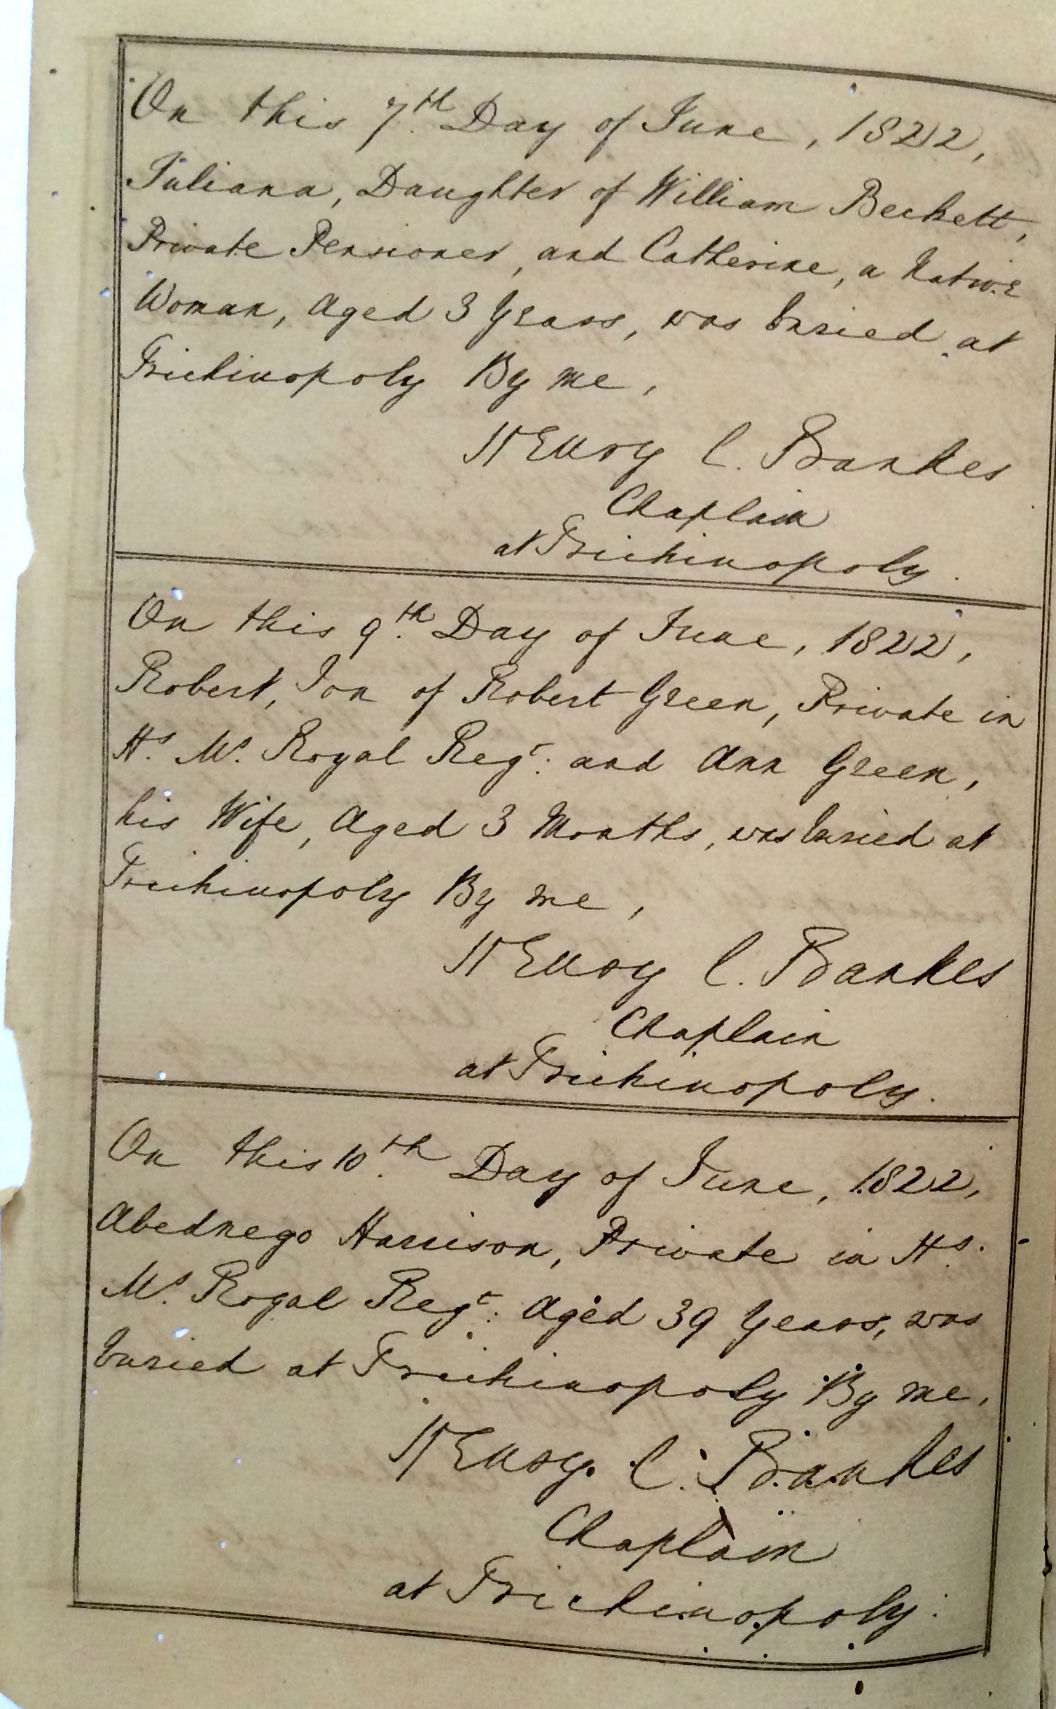 On this 7th Day of June, 1822,
Juliana, Daughter of William Beckett,
Private Pensioner, and Catherine, a Native
Woman, Aged 3 Years, was buried at
Trichinopoly By me,
Henry C. Bankes
Chaplain
at Trichinopoly.
On this 9th Day of June, 1822,
Robert, Son of Robert Green, Private in
Hs. Ms. Royal Regt. and Ann Green,
his Wife, Aged 3 Months, was buried at
Trichinopoly By me,
Henry C. Bankes
Chaplain
at Trichinopoly.
On this 10th Day of June, 1822,
Abednego Harrison, Private in Hs.
Ms. Royal Regt. Aged 39 Years, was
buried at Trichinopoly By me,
Henry C. Bankes
Chaplain
at Trichinopoly.